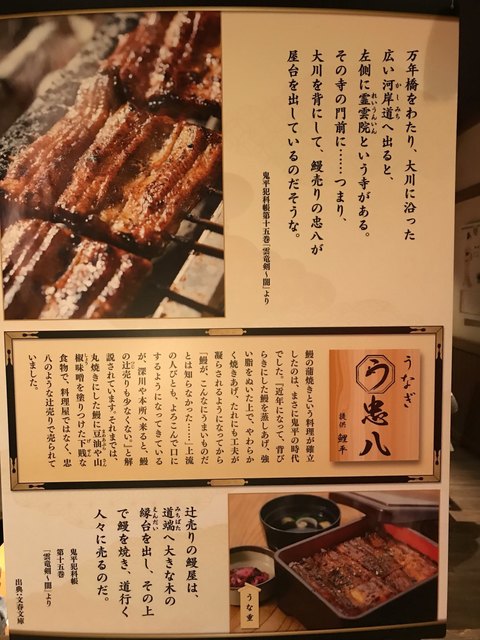 万年橋をわたり、大川に沿った
広い河岸道へ出ると、
左側に霊雲院という寺がある。
その寺の門前に……つまり、
大川を背にして、鰻売りの忠八が
屋台を出しているのだそうな。
鬼平犯科帳第十五巻「雲竜剣〜闇」より
うなぎ
う
忠八
提供 鯉平
鰻の蒲焼きという料理が確立
したのは、まさに鬼平の時代
でした。『近年になって、背び
らきにした鰻を蒸しあげ、強
い脂をぬいた上で、やわらか
く焼きあげ、たれにも工夫が
凝らされるようになってから
「鰻が、こんなにうまいものだ
とは知らなかった……」上流
の人びとも、よろこんで口に
するようになってきている
が、深川や本所へ来ると、鰻
の辻売りも少なくない』と解
説されています。それまでは、
丸焼きにした鰻に豆油や山
椒味噌を塗りつけた下賎な
食物で、料理屋ではなく、忠
八のような辻売りで売られて
いました。
辻売りの鰻屋は、
道端へ大きな木の
縁台を出し、その上
で鰻を焼き、道行く
人々に売るのだ。
鬼平犯科帳
第十五巻
「雲竜剣〜闇」より
出典：文春文庫
うな重